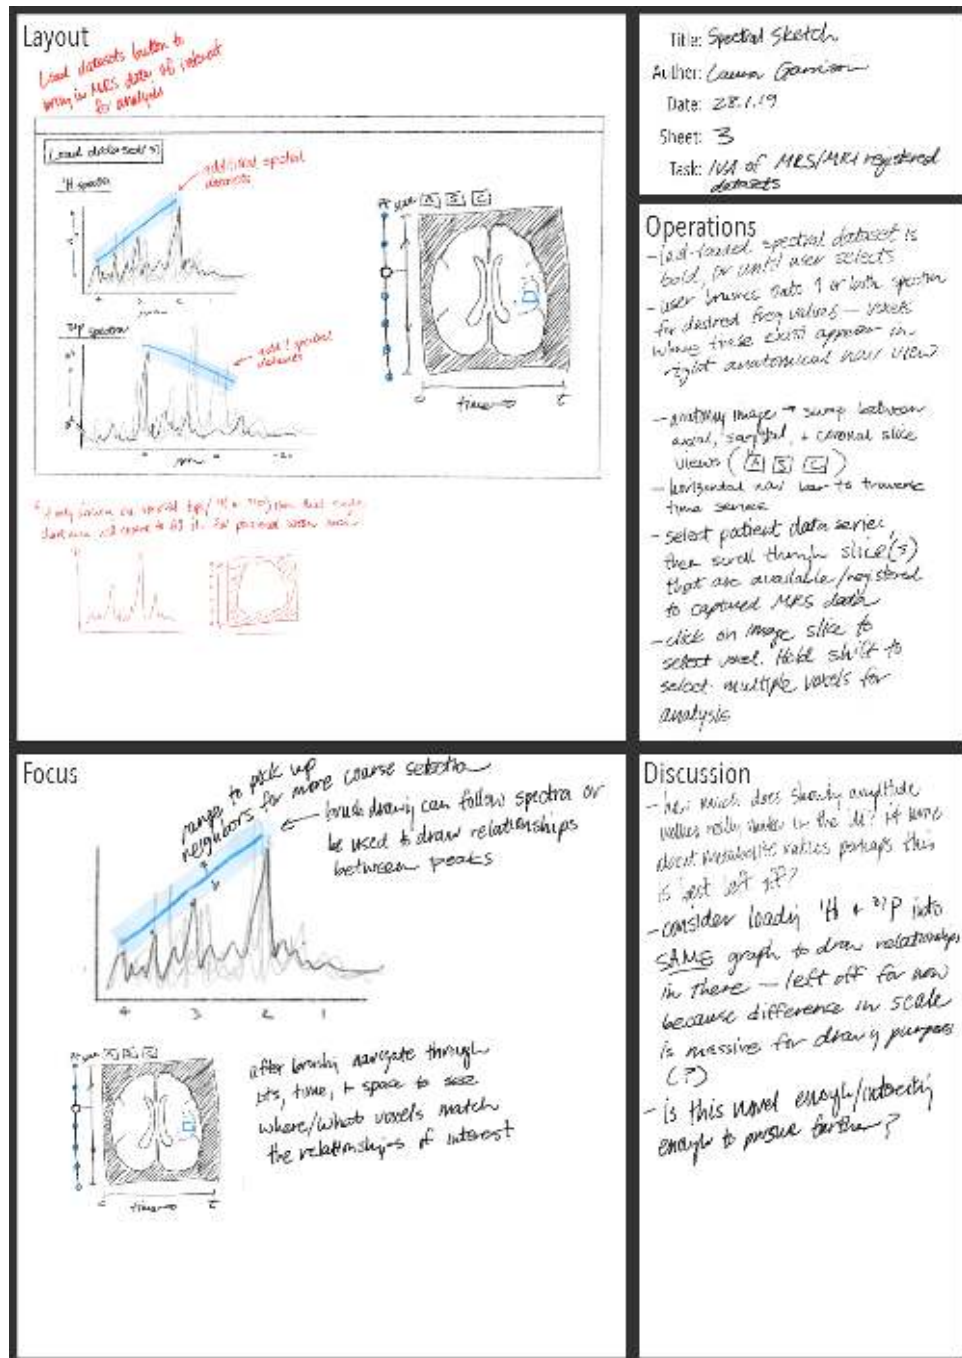 Layout
Load datasets button to
bring in MRS data of interest
for analysis
Load dataset(s)
1H spectra
add'l spectral
datasets
4 3 2 1
31P spectra
add'l spectral
datasets
Pt scan A S C
0 time→ t
Title: Spectral Sketch
Author: Laura Garrison
Date: 28.1.19
Sheet: 3
Task: IVA of MRS/MRI registered
datasets
Operations
- last-loaded spectral dataset is
bold, or until user selects
- user brushes onto 1 or both spectra
for desired freq values — voxels
where these exist appear in
right anatomical nav view
- anatomy image → swap between
axial, sagittal, + coronal slice
views (A S C)
- horizontal nav bar to traverse
time series
- select patient data series,
then scroll through slice(s)
that are available/registered
to captured MRS data
- click on image slice to
select voxel. Hold shift to
select multiple voxels for
analysis
Focus
range to pick up
neighbors for more coarse selection
← brush drawing can follow spectra or
be used to draw relationships
between peaks
4 3 2 1
A S C
0 time→ t
after brushing navigate through
pts, time, + space to see
where/what voxels match
the relationships of interest
Discussion
- how much does showing amplitude
values really matter in the
about metabolite ratios perhaps this
is best left off?
- consider loading 1H + 31P into
SAME graph to draw relationships
in there — left off for now
because difference in scale
is massive for drawing purposes
(?)
- is this novel enough/interesting
enough to pursue further?